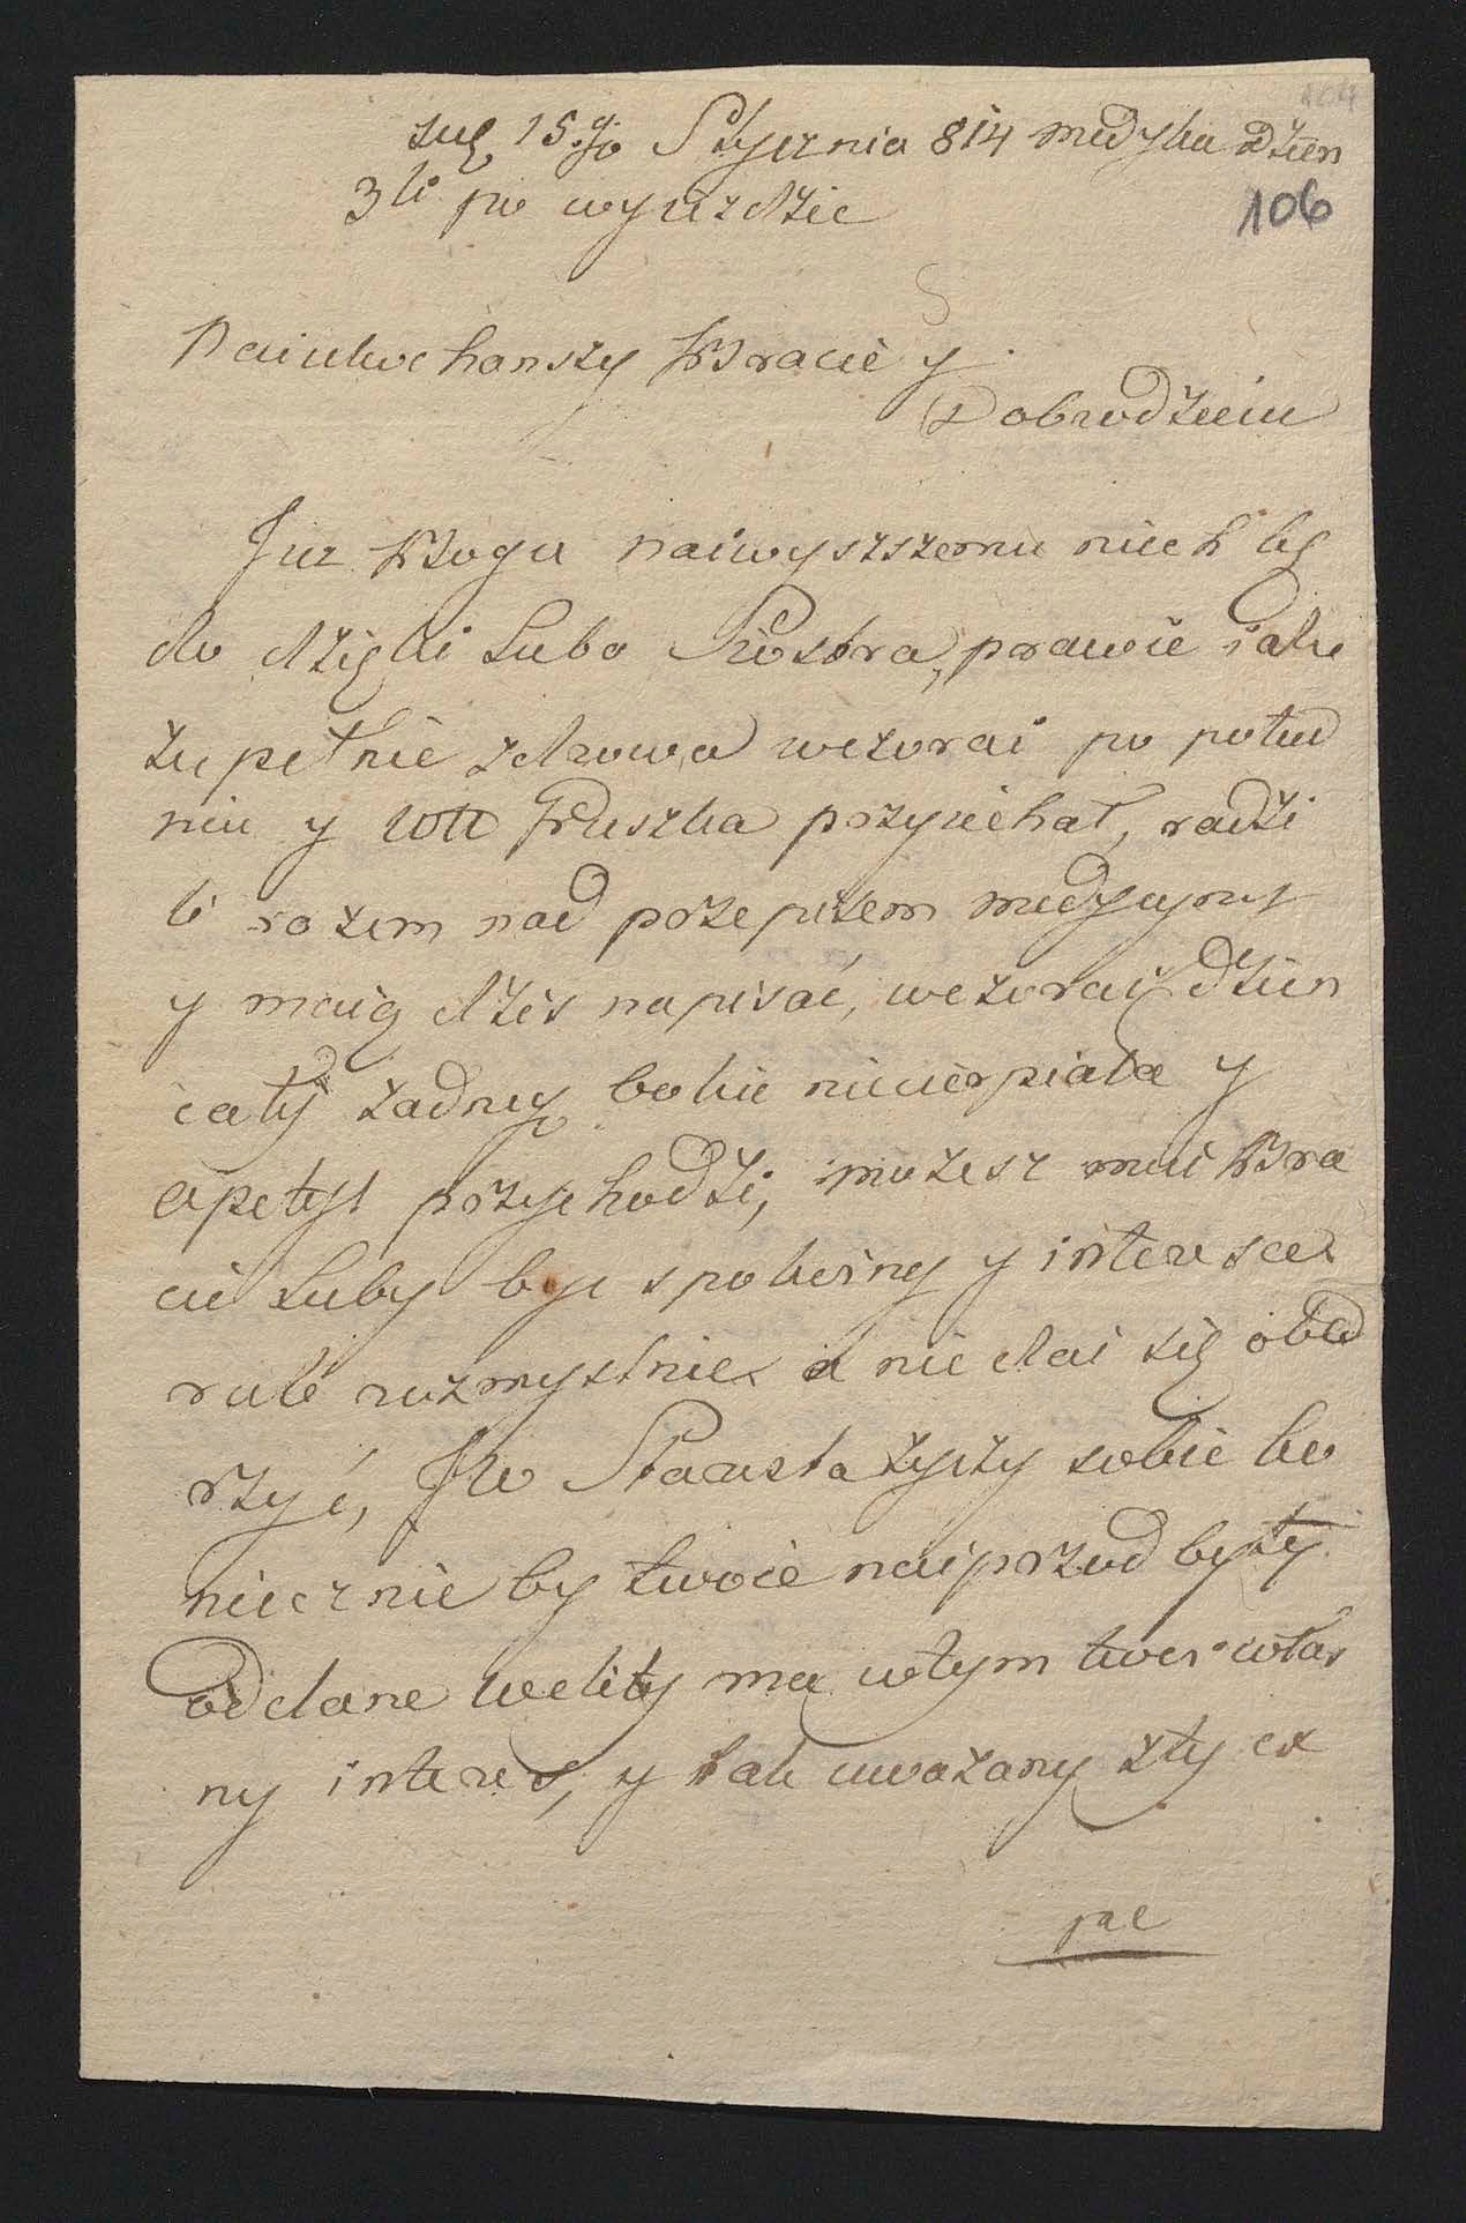 15go Stycznia 814 Medyka Dzien
3ti po wyiezdzie
106
Naiukochanszy Bracie y
Dobrodzieiu
Juz Bogu naiwyszszemu niech będ
do dzięki Luba Siostra, prawie iako
zupełnie zdrowa wczorai po połud
niu y Gruszka przyiechał, radzi
li razem nad przepisem medycyny
y maią dzis napisać, wczorai dzien
cały zadney bolu niecierpiała y
apetyt przychodzi, mozesz mui Bra
cie Luby byc spokoiny y interesa
robić rozmyslnie a nie dai się obed
rzyć, JW Starosta zyczy sobie ko
niecznie by twoie naiprzod były
oddane kwity ma wtym twoi włas
ny interes, y tak uwazany z tych